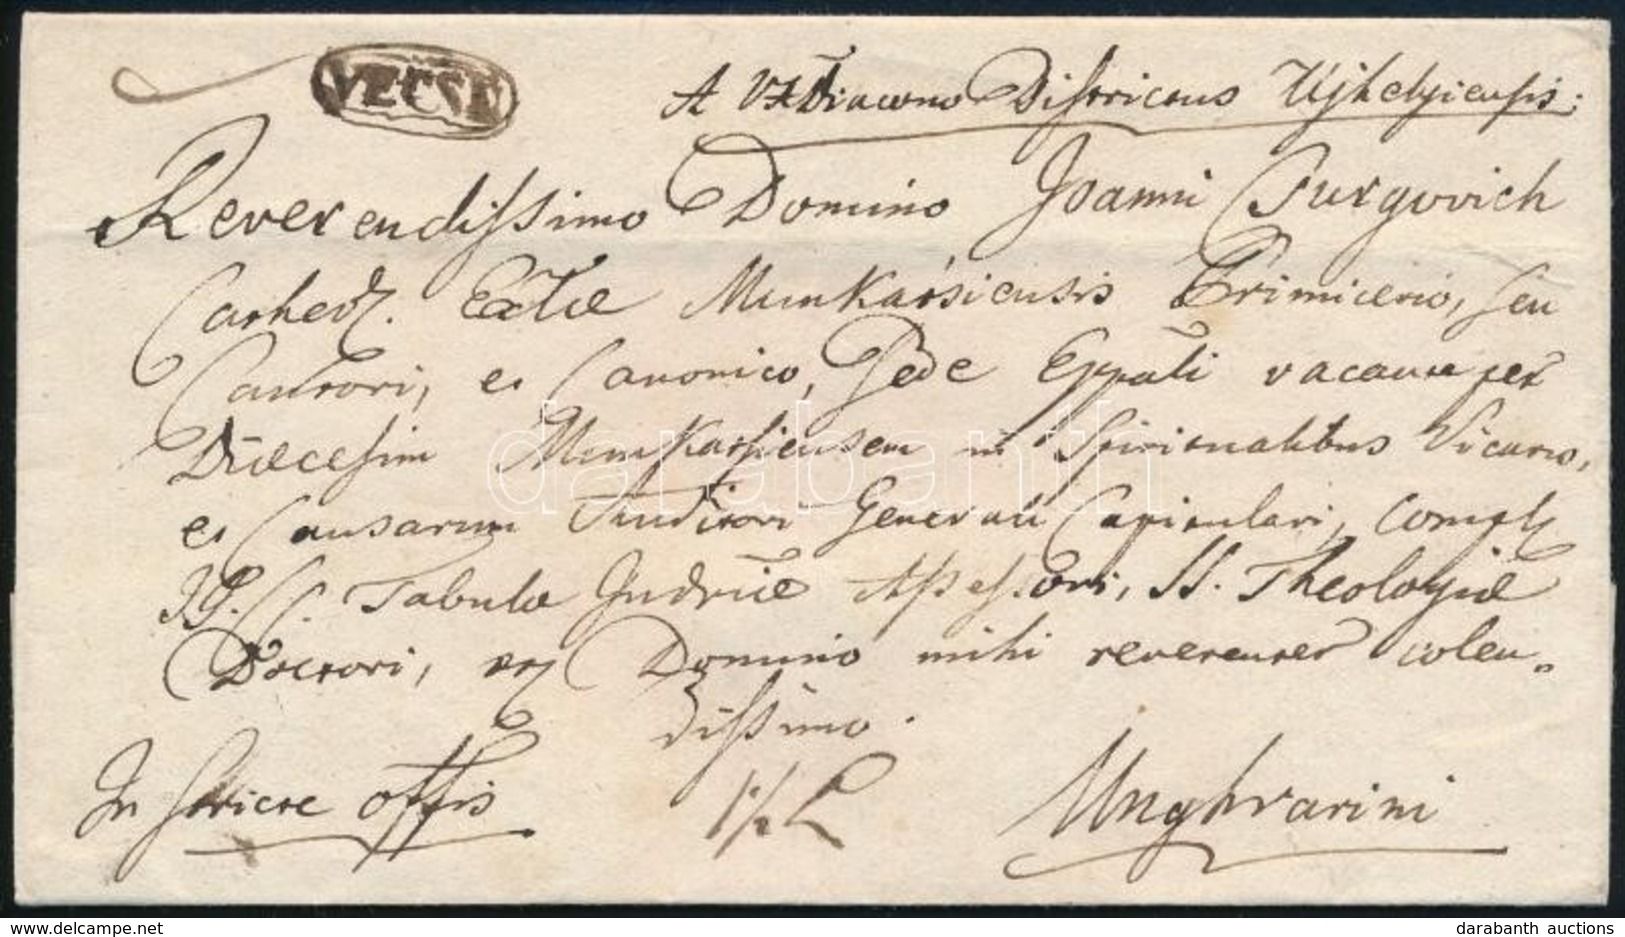 VECSE
A V. A. Diacono Districtus Ujhelyiensis.
Reverendissimo Domino Joanni Churgovich
Cathed. Eccl͞æ Munkácsiensis Primicerio, seu
Cantori, et Canonico, Sede Eppali vacante per
Diœcesim Munkatsiensem in Spiritualibus Vicario,
et Causarum Auditori Generali Capitulari, Compl
II. CC. Tabulæ Judriæ Assessori, SS. Theologiæ
Doctori, Domino mihi reverenter colen=
dissimo.
In stricte offis
Unghvarini
darabanth
darabanth auctions
www.delcampe.net